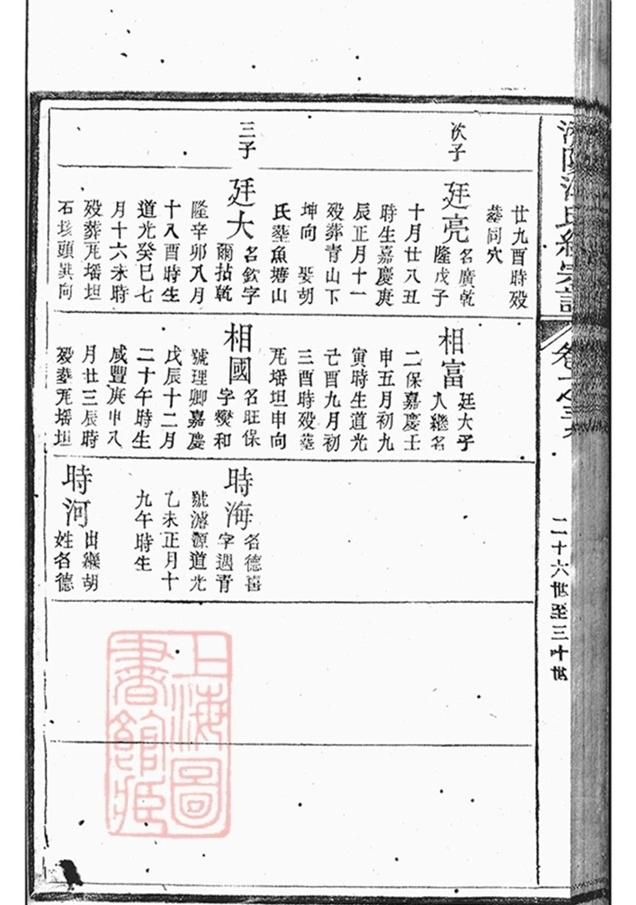 濟陽江氏統宗譜
卷
二十六世至三十世
廿九酉時歿
墓同穴
次子
廷亮
名廣乾
隆戊子
十月廿八丑
時生嘉慶庚
辰正月十一
歿葬青山下
坤向 娶胡
氏墓魚塘山
三子
廷大
名欽字
爾拈乾
隆辛卯八月
十八酉時生
道光癸巳七
月十六未時
歿葬兎墦坦
石垓頭巽向
相富
廷大子
入繼名
二保嘉慶壬
申五月初九
寅時生道光
己酉九月初
三酉時歿墓
兎墦坦申向
相國
名旺保
字燮和
號理卿嘉慶
戊辰十二月
二十午時生
咸豐庚申八
月廿三辰時
歿墓兎墦坦
時海
名德喜
字週青
號濬源道光
乙未正月十
九午時生
時河
出繼胡
姓名德
上海圖
書館藏